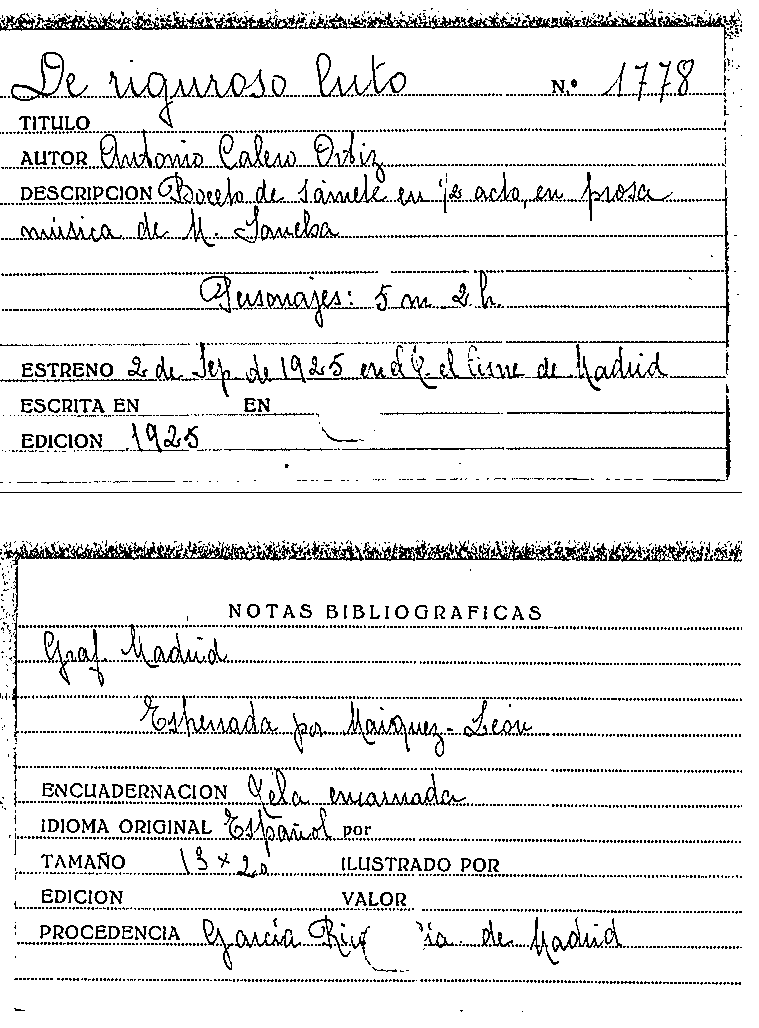 De riguroso luto N.º 1778
TITULO
AUTOR Antonio Calero Ortiz
DESCRIPCION Boceto de sainete en ½ acto, en prosa
música de M. Sancha
Personajes: 5 m 2 h.
ESTRENO 2 de Sep de 1925 en el T. el Cisne de Madrid
ESCRITA EN EN
EDICION 1925
NOTAS BIBLIOGRAFICAS
Graf. Madrid
Estrenada por Maiquez-León
ENCUADERNACION Tela encarnada
IDIOMA ORIGINAL Español por
TAMAÑO 13 x 20 ILUSTRADO POR
EDICION VALOR
PROCEDENCIA García Rico de Madrid